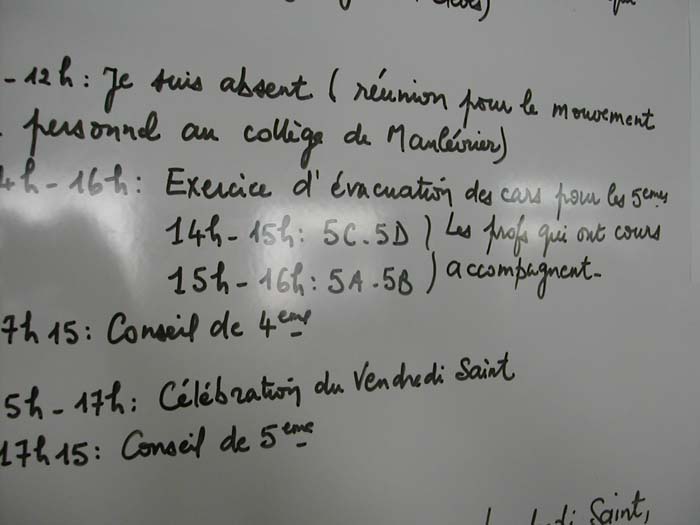 - 12h : Je suis absent ( réunion pour le mouvement
personnel au collège de Maulévrier)
4h - 16h : Exercice d'évacuation des cars pour les 5emes
14h - 15h : 5C . 5D ) Les profs qui ont cours
15h - 16h : 5A . 5B ) accompagnent -
7h 15 : Conseil de 4eme
5h - 17h : Célébration du Vendredi Saint
17h 15 : Conseil de 5eme
Saint,